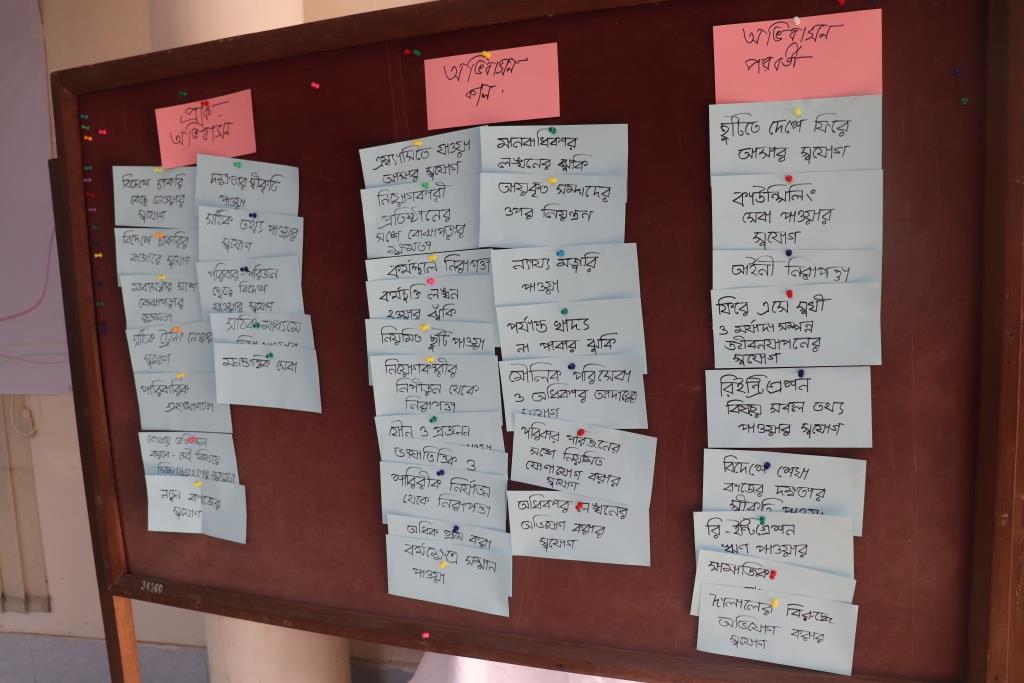 প্রাক
অভিবাসন
বিদেশে চাকরি
বেছে নেওয়ার
সুযোগ
বিদেশে চাকরির
বাজারে সুযোগ
মধ্যস্থতার সঙ্গে
বোঝাপড়ার
ক্ষমতা
সঠিক ট্রেনিং নেওয়ার
সুযোগ
পারিবারিক
নতুন কাজের
সুযোগ
দক্ষতার স্বীকৃতি
পাওয়া
সঠিক তথ্য পাওয়ার
সুযোগ
পরিবার-পরিজন
ছেড়ে বিদেশে
যাওয়ার সুযোগ
সঠিক মাধ্যমে
মনস্তাত্ত্বিক সেবা
অভিবাসন
কাল
এম্ব্যাসিতে যাওয়া
আসার সুযোগ
নিয়োগকারী
প্রতিষ্ঠানের
সঙ্গে বোঝাপড়ার
ক্ষমতা
কর্মস্থলে নিরাপত্তা
কর্মচুক্তি লঙ্ঘন
হওয়ার ঝুঁকি
নিয়মিত ছুটি পাওয়া
নিয়োগকারীর
নিপীড়ন থেকে
নিরাপত্তা
যৌন ও প্রজনন
শারিরীক নির্যাতন
থেকে নিরাপত্তা
অধিক শ্রম করা
কর্মক্ষেত্রে সম্মান
পাওয়া
মানবাধিকার
লঙ্ঘনের ঝুকি
আয়কৃত সম্পদের
ওপর নিয়ন্ত্রন
ন্যায্য মজুরি
পাওয়া
পর্যাপ্ত খাদ্য
না পাবার ঝুকি
মৌলিক পরিসেবা
ও অধিকার আদায়ের
সুযোগ
পরিবার পরিজনের
সঙ্গে নিয়মিত
যোগাযোগ করার
সুযোগ
অধিকার লঙ্ঘনের
অভিযোগ করার
সুযোগ
অভিবাসন
পরবর্তী
ছুটিতে দেশে ফিরে
আসার সুযোগ
কাউন্সিলিং
সেবা পাওয়ার
সুযোগ
আইনী নিরাপত্তা
ফিরে এসে সুখী
ও মর্যাদা সম্পন্ন
জীবনযাপনের
সুযোগ
রিইন্ট্রিগ্রেশন
বিষয়ে সকল তথ্য
পাওয়ার সুযোগ
বিদেশে শেখা
কাজের দক্ষতার
স্বীকৃতি পাওয়া
রি-ইন্টিগ্রেশন
ঋণ পাওয়ার
সামাজিক
দালালের বিরুদ্ধে
অভিযোগ করার
সুযোগ
34360